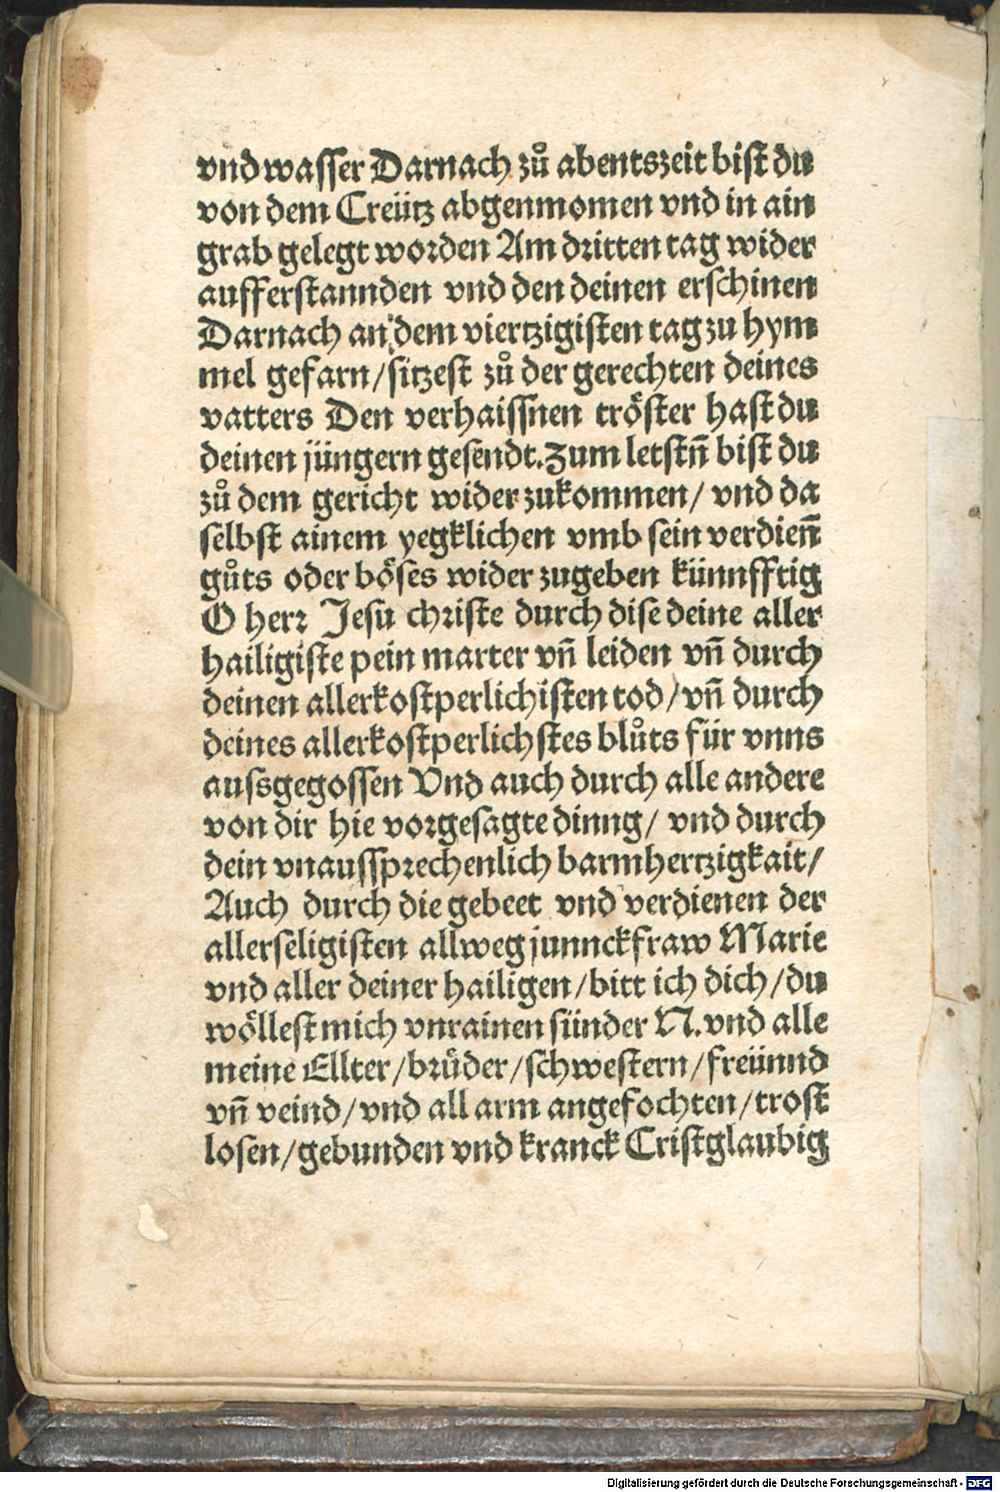 vnd wasser Darnach zů abentszeit bist du
von dem Creütz abgenmomen vnd in ain
grab gelegt worden Am dritten tag wider
aufferstannden vnd den deinen erschinen
Darnach an dem viertzigisten tag zu hym
mel gefarn/sitzest zů der gerechten deines
vatters Den verhaissnen tröster hast du
deinen jüngern gesendt. Zum letstn̄ bist du
zů dem gericht wider zukommen/ vnd da
selbst ainem yegklichen vmb sein verdien̄
gůts oder böses wider zugeben künnfftig
O herr Jesu christe durch dise deine aller
hailigiste pein marter vn̄ leiden vn̄ durch
deinen allerkostperlichisten tod/vn̄ durch
deines allerkostperlichstes blůts für vnns
aussgegossen Vnd auch durch alle andere
von dir hie vorgesagte dinng/ vnd durch
dein vnaussprechenlich barmhertzigkait/
Auch durch die gebeet vnd verdienen der
allerseligisten allweg junnckfraw Marie
vnd aller deiner hailigen/bitt ich dich/du
wöllest mich vnrainen sünder N. vnd alle
meine Ellter/brüder/schwestern/freünnd
vn̄ veind/vnd all arm angefochten/trost
losen/gebunden vnd kranck Cristglaubig
Digitalisierung gefördert durch die Deutsche Forschungsgemeinschaft - DFG